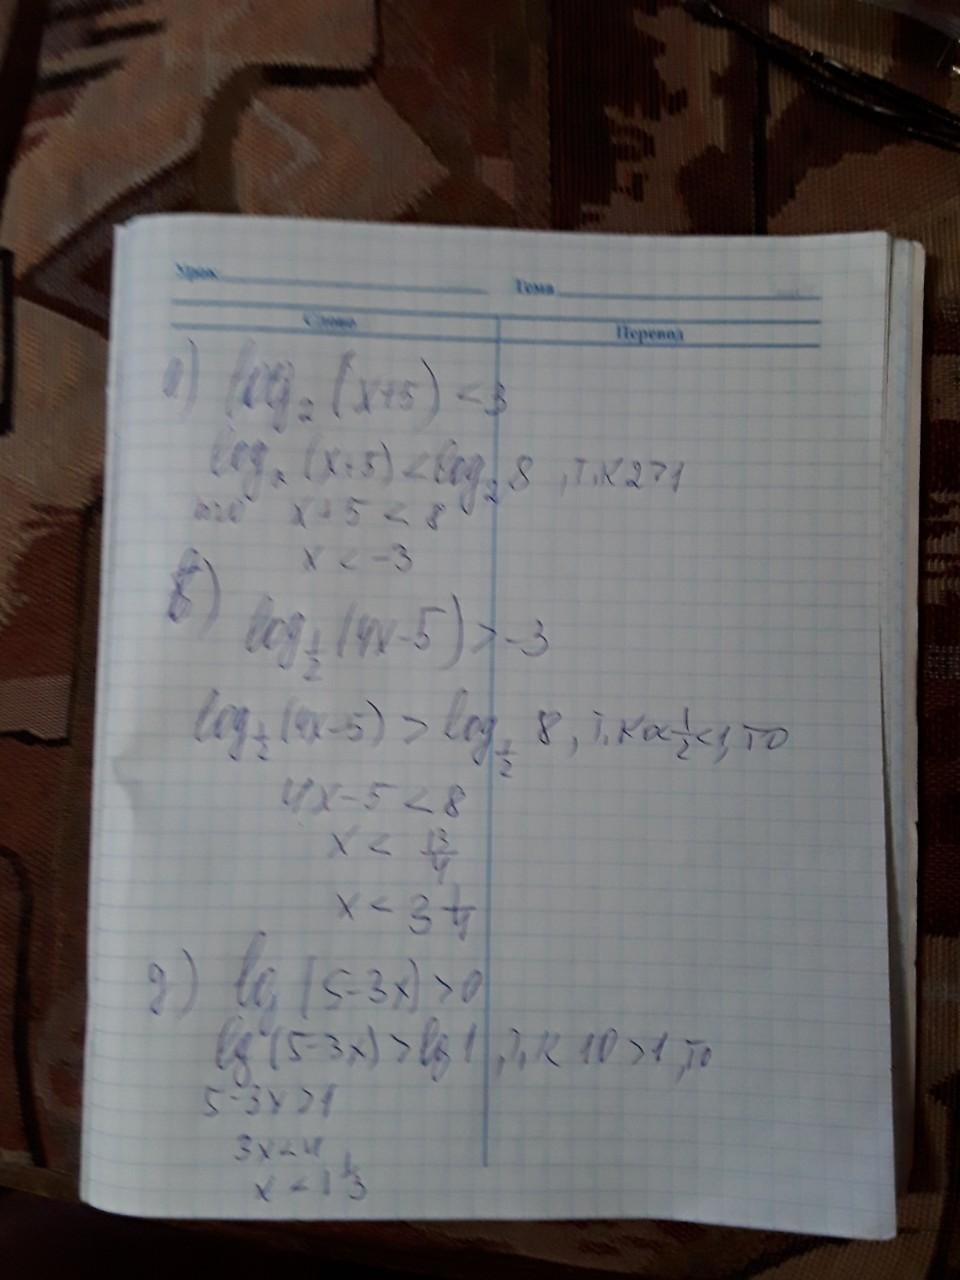 Урок Тема
Слово Перевод
а) log₂ (x+5) < 3
log₂ (x+5) < log₂ 8 , т.к 2>1
x+5 < 8
x < -3
б) log_{1/2} (4x-5) > -3
log_{1/2} (4x-5) > log_{1/2} 8, т.к 0< 1/2 <1, то
4x-5 < 8
x < 13/4
x < 3 1/4
д) lg (5-3x) > 0
lg (5-3x) > lg 1, т.к 10 > 1, то
5-3x > 1
3x < 4
x < 1 1/3